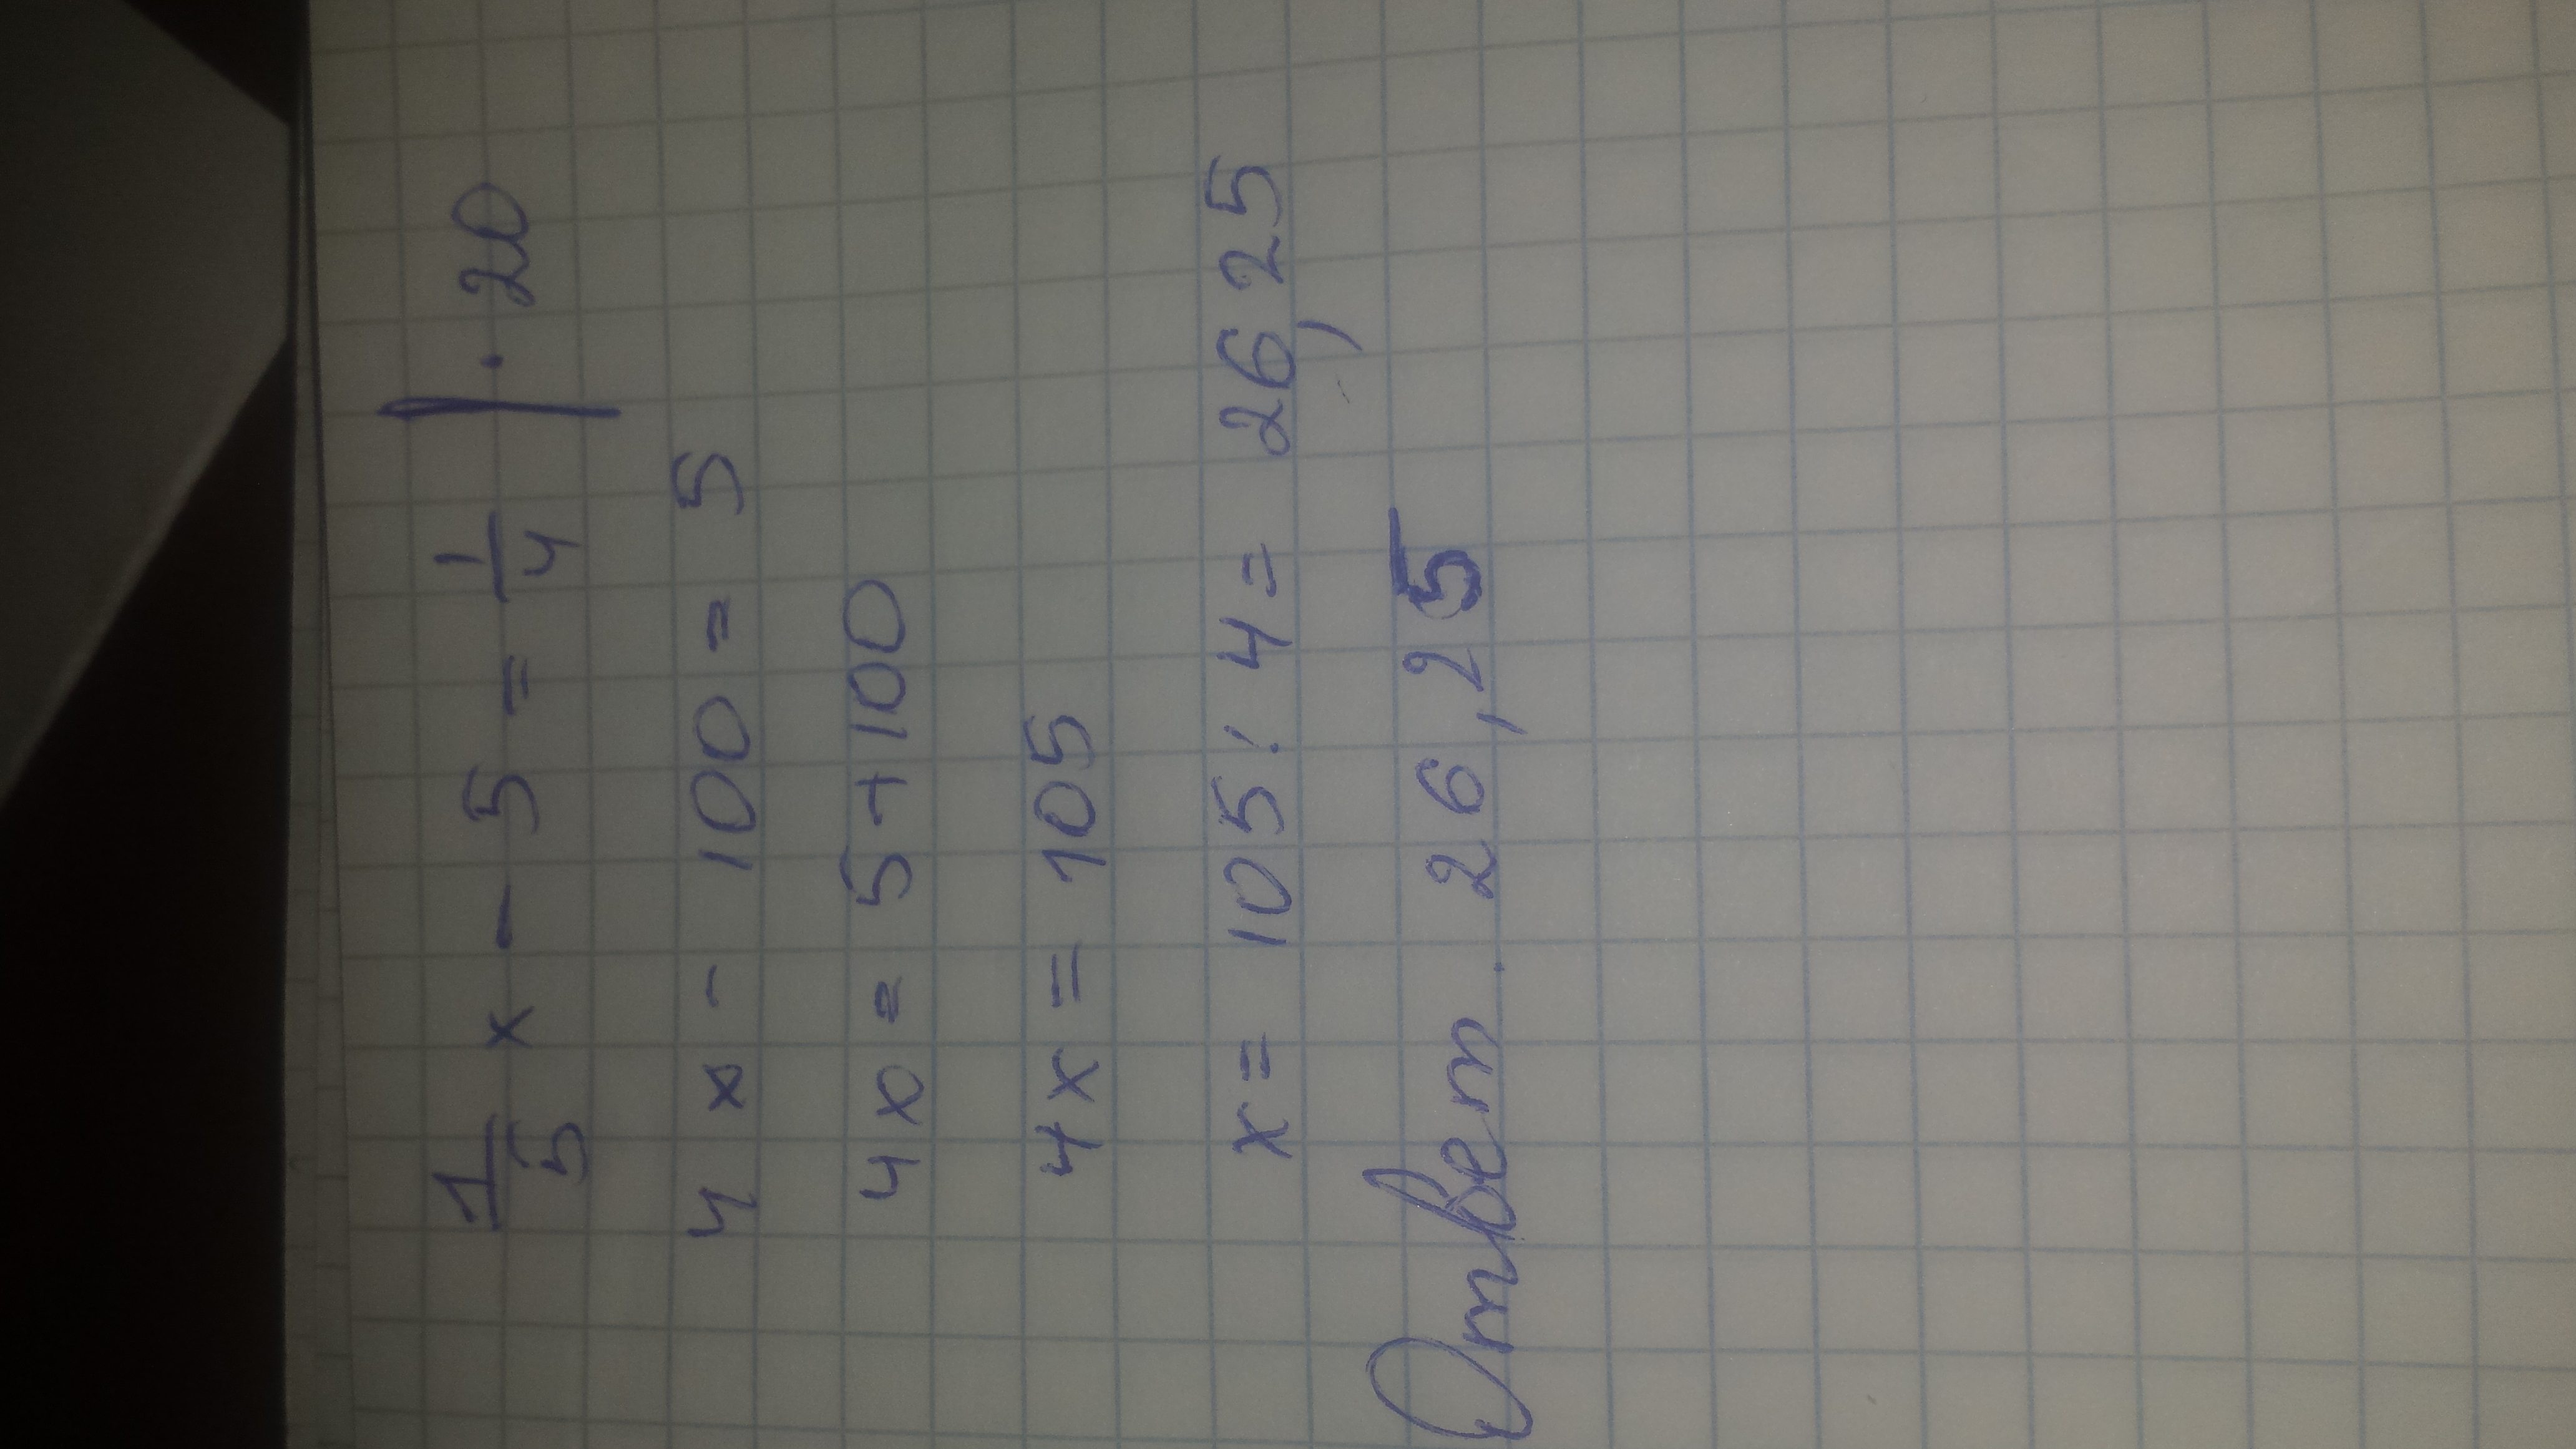 1/5 x - 5 = 1/4 | · 20
4 x - 100 = 5
4x = 5+100
4x = 105
x = 105 : 4 = 26,25
Ответ. 26,25